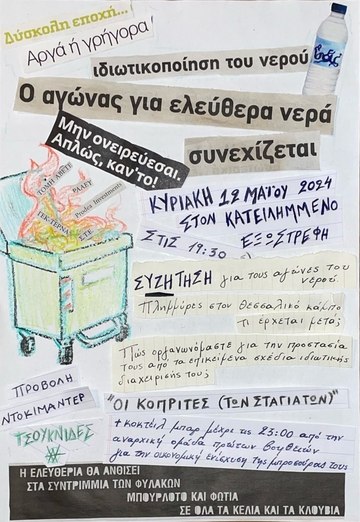 Δύσκολη εποχή...
Αργά ή γρήγορα!
ιδιωτικοποίηση του νερού
Ο αγώνας για ελεύθερα νερά
Μην ονειρεύεσαι.
Απλώς, καν'το!
συνεχίζεται
ΚΥΡΙΑΚΗ 12 ΜΑΪΟΥ 2024
ΣΤΟΝ ΚΑΤΕΙΛΗΜΜΕΝΟ
ΣΤΙΣ 19:30 ΕΞΩΣΤΡΕΦΗ
ΣΥΖΗΤΗΣΗ για τους αγώνες του νερού.
Πλημμύρες στον θεσσαλικό κάμπο
τι έρχεται μετά;
Πώς οργανωνόμαστε για την προστασία
τους από τα επικείμενα σχέδια ιδιωτικής
διαχείρισής τους;
ΠΡΟΒΟΛΗ
ΝΤΟΚΙΜΑΝΤΕΡ
"ΟΙ ΚΟΠΡΙΤΕΣ (ΤΩΝ ΣΤΑΓΙΑΤΩΝ)"
ΤΣΟΥΚΝΙΔΕΣ
+ κοκτέιλ μπαρ μέχρι τις 23:00 από την
αναρχική ομάδα πρώτων βοηθειών
για την οικονομική ενίσχυση της μπροσούρας τους
Η ΕΛΕΥΘΕΡΙΑ ΘΑ ΑΝΘΙΣΕΙ
ΣΤΑ ΣΥΝΤΡΙΜΜΙΑ ΤΩΝ ΦΥΛΑΚΩΝ
ΜΠΟΥΡΛΟΤΟ ΚΑΙ ΦΩΤΙΑ
ΣΕ ΟΛΑ ΤΑ ΚΕΛΙΑ ΚΑΙ ΤΑ ΚΛΟΥΒΙΑ